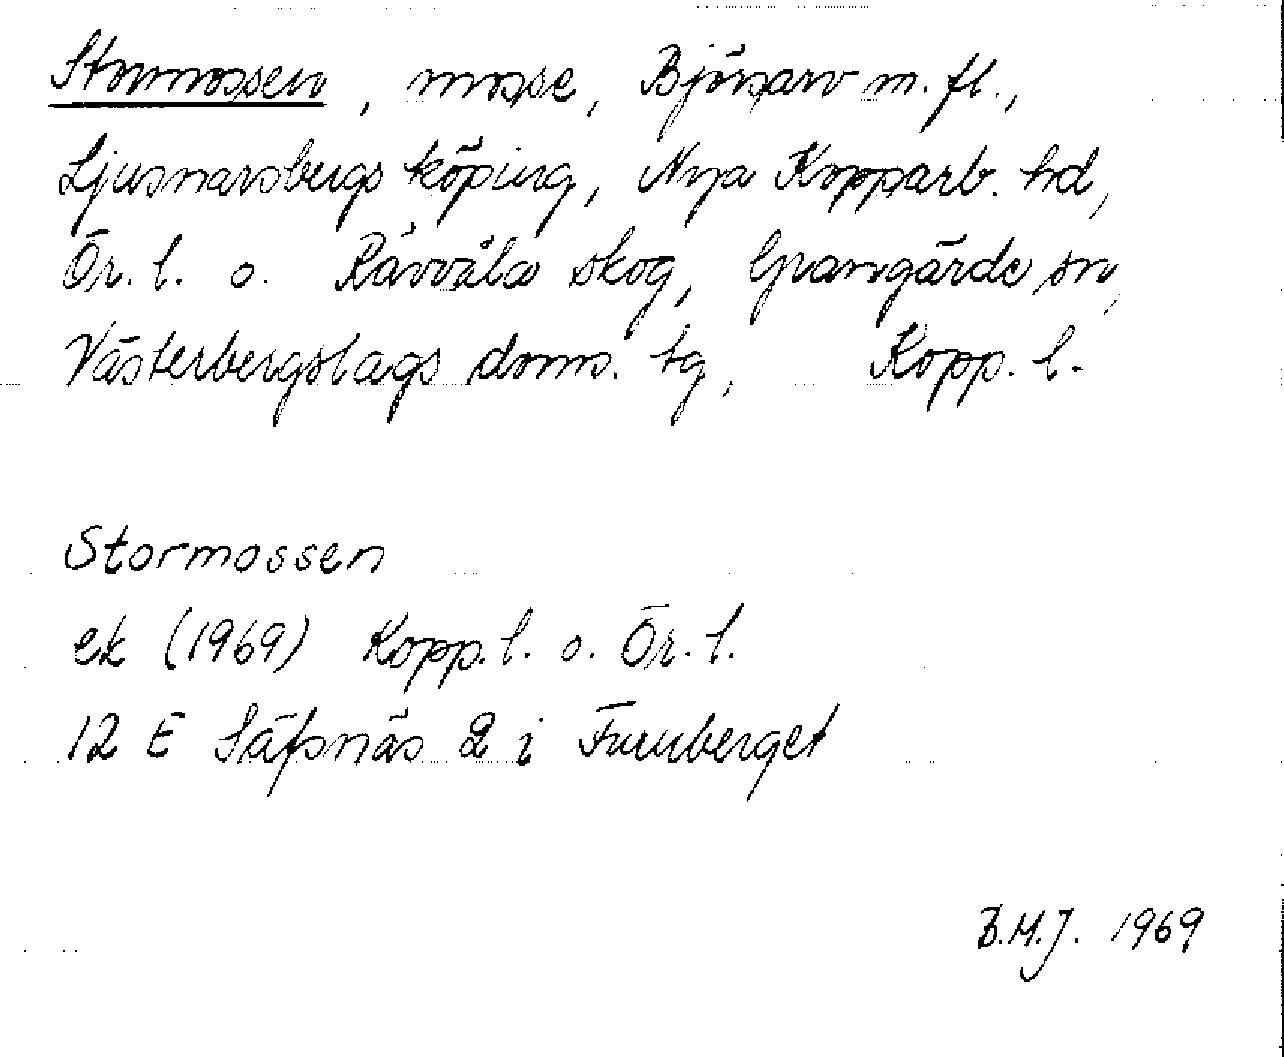 Stormossen, mosse, Björsarv m. fl.,
Ljusnarsbergs köping, Nya Kopparb. hd,
Ör. l. o. Rävvåla skog, Grangärde sn,
Västerbergslags doms. tg, Kopp. l.
Stormossen
ek (1969) Kopp. l. o. Ör. l.
12 E Säfsnäs 2 i Furuberget
B.M.J. 1969